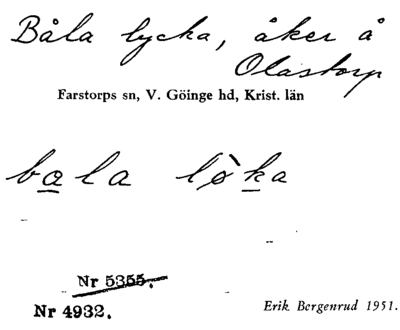 Båla lycka, åker å
Olastorp
Farstorps sn, V. Göinge hd, Krist. län
bala lòka
Nr 5355.
Nr 4932.
Erik Bergenrud 1951.